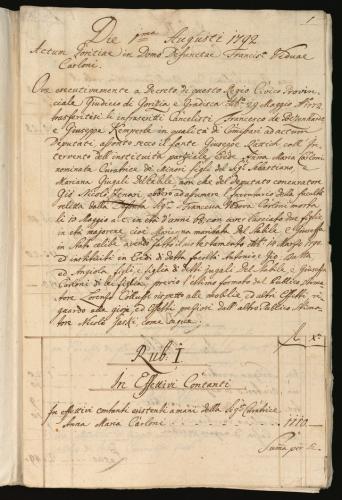 1
Die 1ma Augusti 1792
Actum Goritiae in Domo Defunctae Francisc. Viduae
Carloni.
Ove executivamente a Decreto di questo Regio Civico Provin-
ciale Giudicio di Gorizia e Gradisca dd. 29 Maggio
trasferitesi le infrascritti Cancelisti Francesco de
e Giuseppe Kemperle in qualità di Comissari ad actum
Deputati, assonto seco il fonte Giuseppe coll' in
tervento dell' instituita parziale Erede Anna Maria Carloni
nominata Curatrice de Minori figli del Sigr
Mariana Giugali del Stabile non che del deputato concuratore
Gio Nicolò ad assumere l' Inventario della facoltà
relitta dalla Sigra Francesca Vedova Carloni morta
li 19 Maggio a. c. in età d'anni con aver lasciato due figlie
in età majorene cioè Marianna maritata del Stabile, e Giuseppa
in stato celibe avendo fatto il suo testamento dd. 14 Marzo 1790
ed instituiti in Eredi di detta facoltà Antonio e Gio Batta,
ed Angiola figli, e figlia di detti Jugali del Stabile e Giuseppa
Carloni di lei figlia, previo l' estimo formato dal Publico Stima
tor Lorenzo rispetto alle mobilie ed altri Effetti, e
riguardo alle gioje ed Effetti preziosi dall' altro Publico Stima-
tor Nicolò come segue.
f. xr
Rub. I
In Effettivi Contanti
In effettivi contanti esistenti a mani della Sigra Curatrice
Anna Maria Carloni 1110
Summa per se